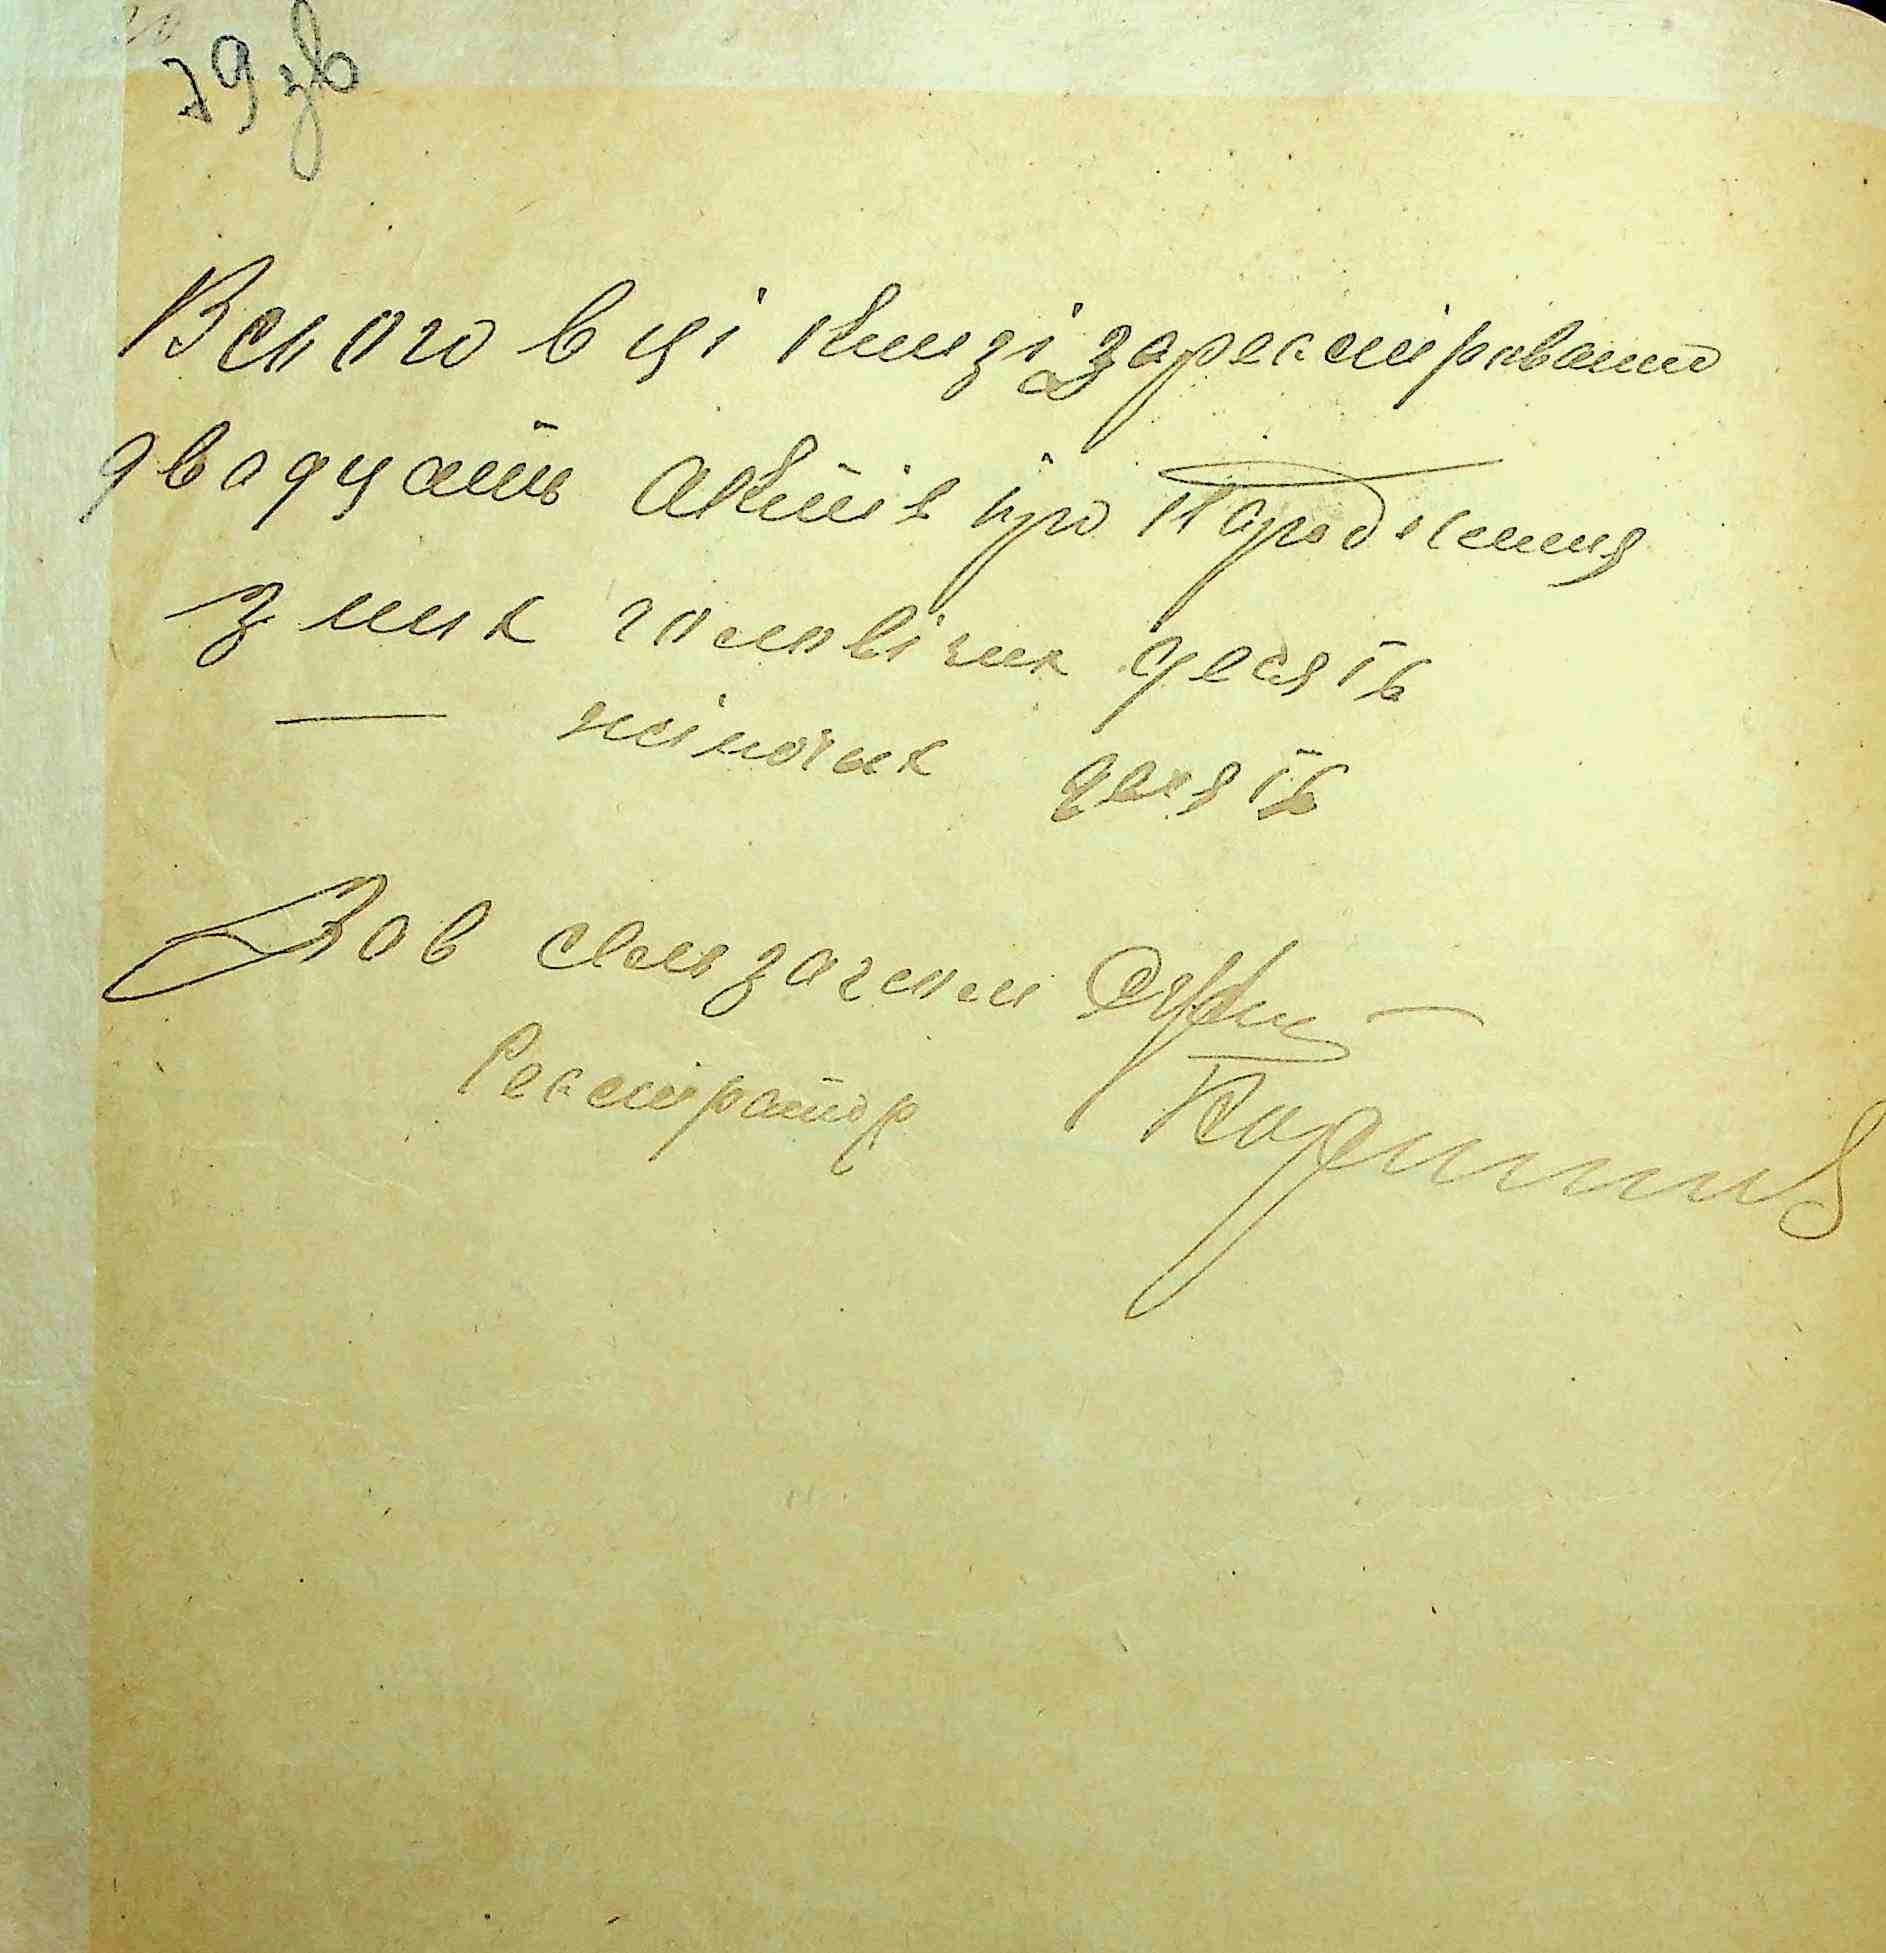 79 зв
Всього в ці книзі зареєстріровано
двадцять актів про народження
з них чоловічих десять
— жіночих десять
Зав сільзагсом
Реєстратор